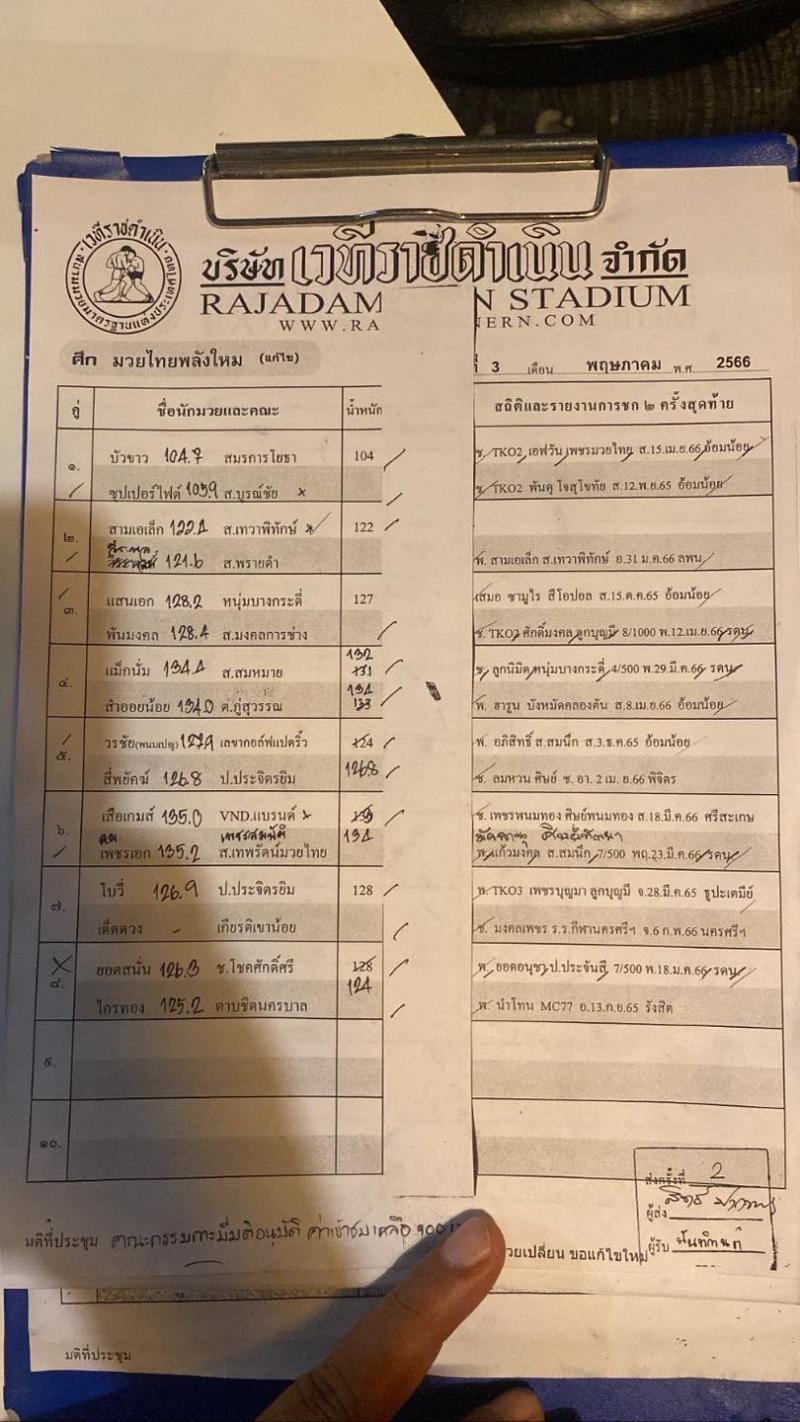 เวทีราชดำเนิน
บริษัท เวทีราชดำเนิน จำกัด
RAJADAM N STADIUM
WWW.RA NERN.COM
ศึก มวยไทยพลังใหม่ (แก้ไข)
3 เดือน พฤษภาคม พ.ศ. 2566
คู่ ชื่อนักมวยและคณะ น้ำหนัก สถิติและรายงานการชก ๒ ครั้งสุดท้าย
๑. บัวขาว 104.7 สมรการโยธา 104 ช. TKO2 เอฟวัน เพชรมวยไทย ส.15.เม.ย.66 อ้อมน้อย
ซุปเปอร์ไฟต์ 103.9 ส.บูรณ์ชัย × ช. TKO2 พันดุ โจสุโขทัย ส.12.พ.ย.65 อ้อมน้อย
๒. สามเอเล็ก 122.1 ส.เทวาพิทักษ์ 122
121.6 ส.พรายดำ พ. สามเอเล็ก ส.เทวาพิทักษ์ อ.31 ม.ค.66 ลพน
๓. แสนเอก 128.2 หนุ่มบางกระดี่ 127 เสมอ ซามูไร สีโอปอล ส.15.ต.ค.65 อ้อมน้อย
พันมงคล 128.4 ส.มงคลการช่าง ช. TKO2 ศักดิ์มงคล ลูกบุญมี 8/1000 พ.12.เม.ย.66 รดน
132
๔. แม็กนั่ม 134.1 ส.สมหมาย 131 ช. ลูกนิมิต หนุ่มบางกระดี่ 4/500 พ.29.มี.ค.66 รดน
131
สำออยน้อย 134.0 ต.ภู่สุวรรณ 133 พ. ฮารูน บังหมัดคลองตัน ส.8.เม.ย.66 อ้อมน้อย
๕. วรชัย(พนมเปญ) 127.9 เลขากอล์ฟแปดริ้ว 124 พ. อภิสิทธิ์ ส.สมนึก ส.3.ธ.ค.65 อ้อมน้อย
สี่พยัคฆ์ 126.8 ป.ประจิตรยิม 126.8 ช. ลมหวน ศิษย์ ช. อา. 2 เม. ย.66 พิจิตร
๖. เสือเกมส์ 135.0 VND.แบรนด์ × ช. เพชรพนมทอง ศิษย์พนมทอง ส.18 มี.ค.66 ศรีสะเกษ
131
เพชรเอก 135.2 ส.เทพรัตน์มวยไทย พ. แก้วมงคล ส.สมนึก 7/500 พฤ.23.มี.ค.66 รดน
๗. โบวี่ 126.9 ป.ประจิตรยิม 128 พ. TKO3 เพชรบุญมา ลูกบุญมี จ.28.มี.ค.65 ธูปะเตมีย์
เด็ดดวง - เกียรติเขาน้อย ช. มงคลเพชร ร.ร.กีฬานครศรีฯ จ.6 ก.พ.66 นครศรีฯ
๘. ยอดสนั่น 126.3 ช.โชคศักดิ์ศรี 128 พ. ยอดอนุชา ป.ประจันสี 7/500 พ.18.ม.ค.66 รดน
124
ไกรทอง 125.2 ดาบชิตนครบาล พ. นำโทน MC77 อ.13.ก.ย.65 รังสิต
๙.
๑๐.
ส่งครั้งที่ 2
ผู้ส่ง
มติที่ประชุม คณะกรรมการมีมติอนุมัติ ค่าเข้าชมเหลือ
วยเปลี่ยน ขอแก้ไขใหม่ ผู้รับ
มติที่ประชุม